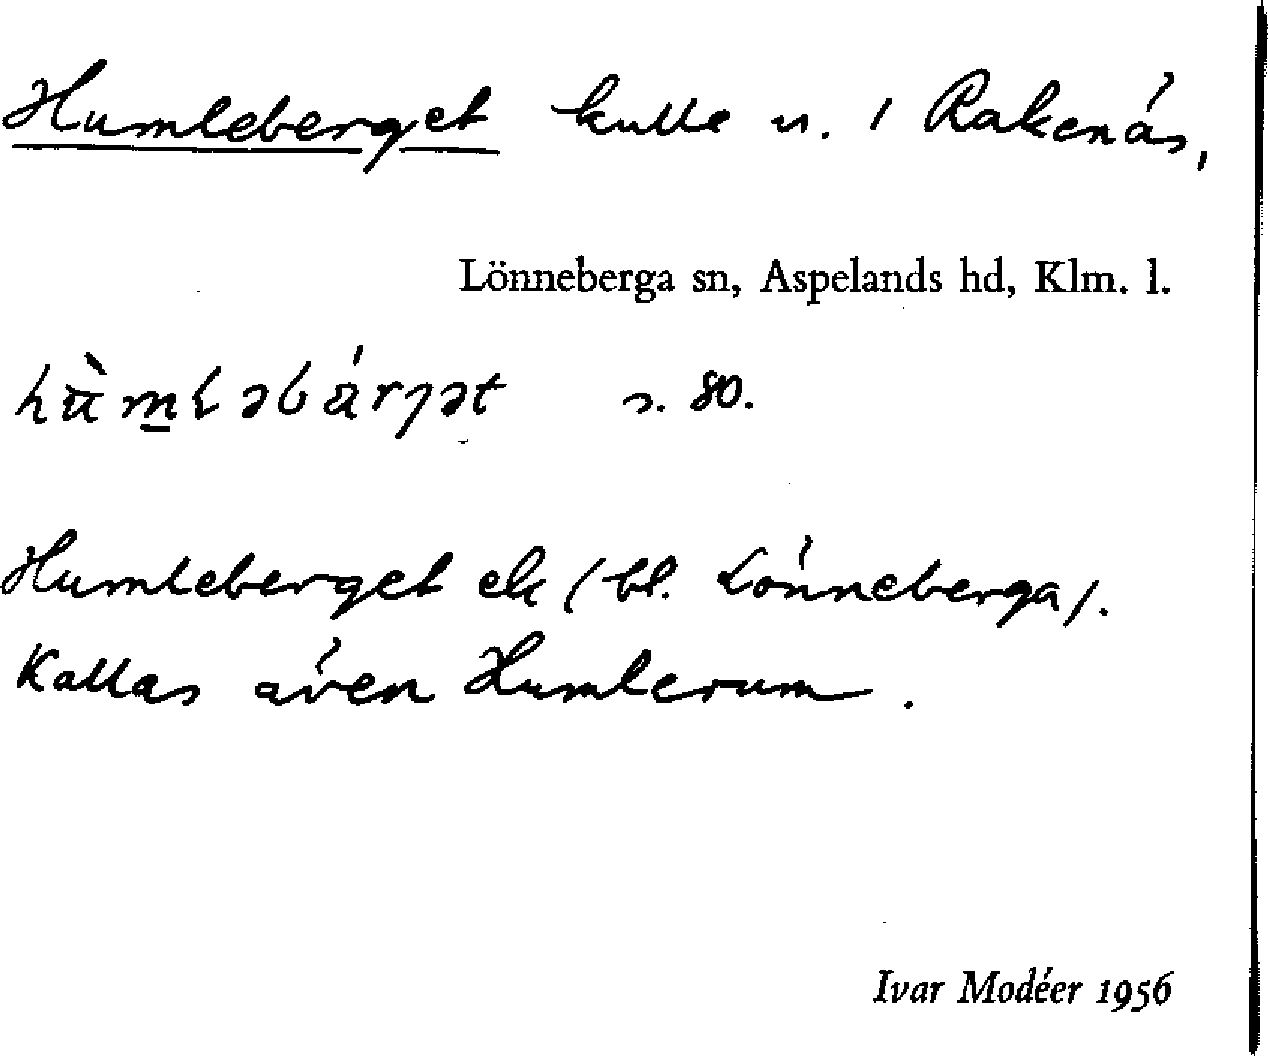 Humleberget kulle n. i Rakenäs,
Lönneberga sn, Aspelands hd, Klm. l.
s. 80.
Humleberget ek (bl. Lönneberga).
Kallas även Humlerum.
Ivar Modéer 1956